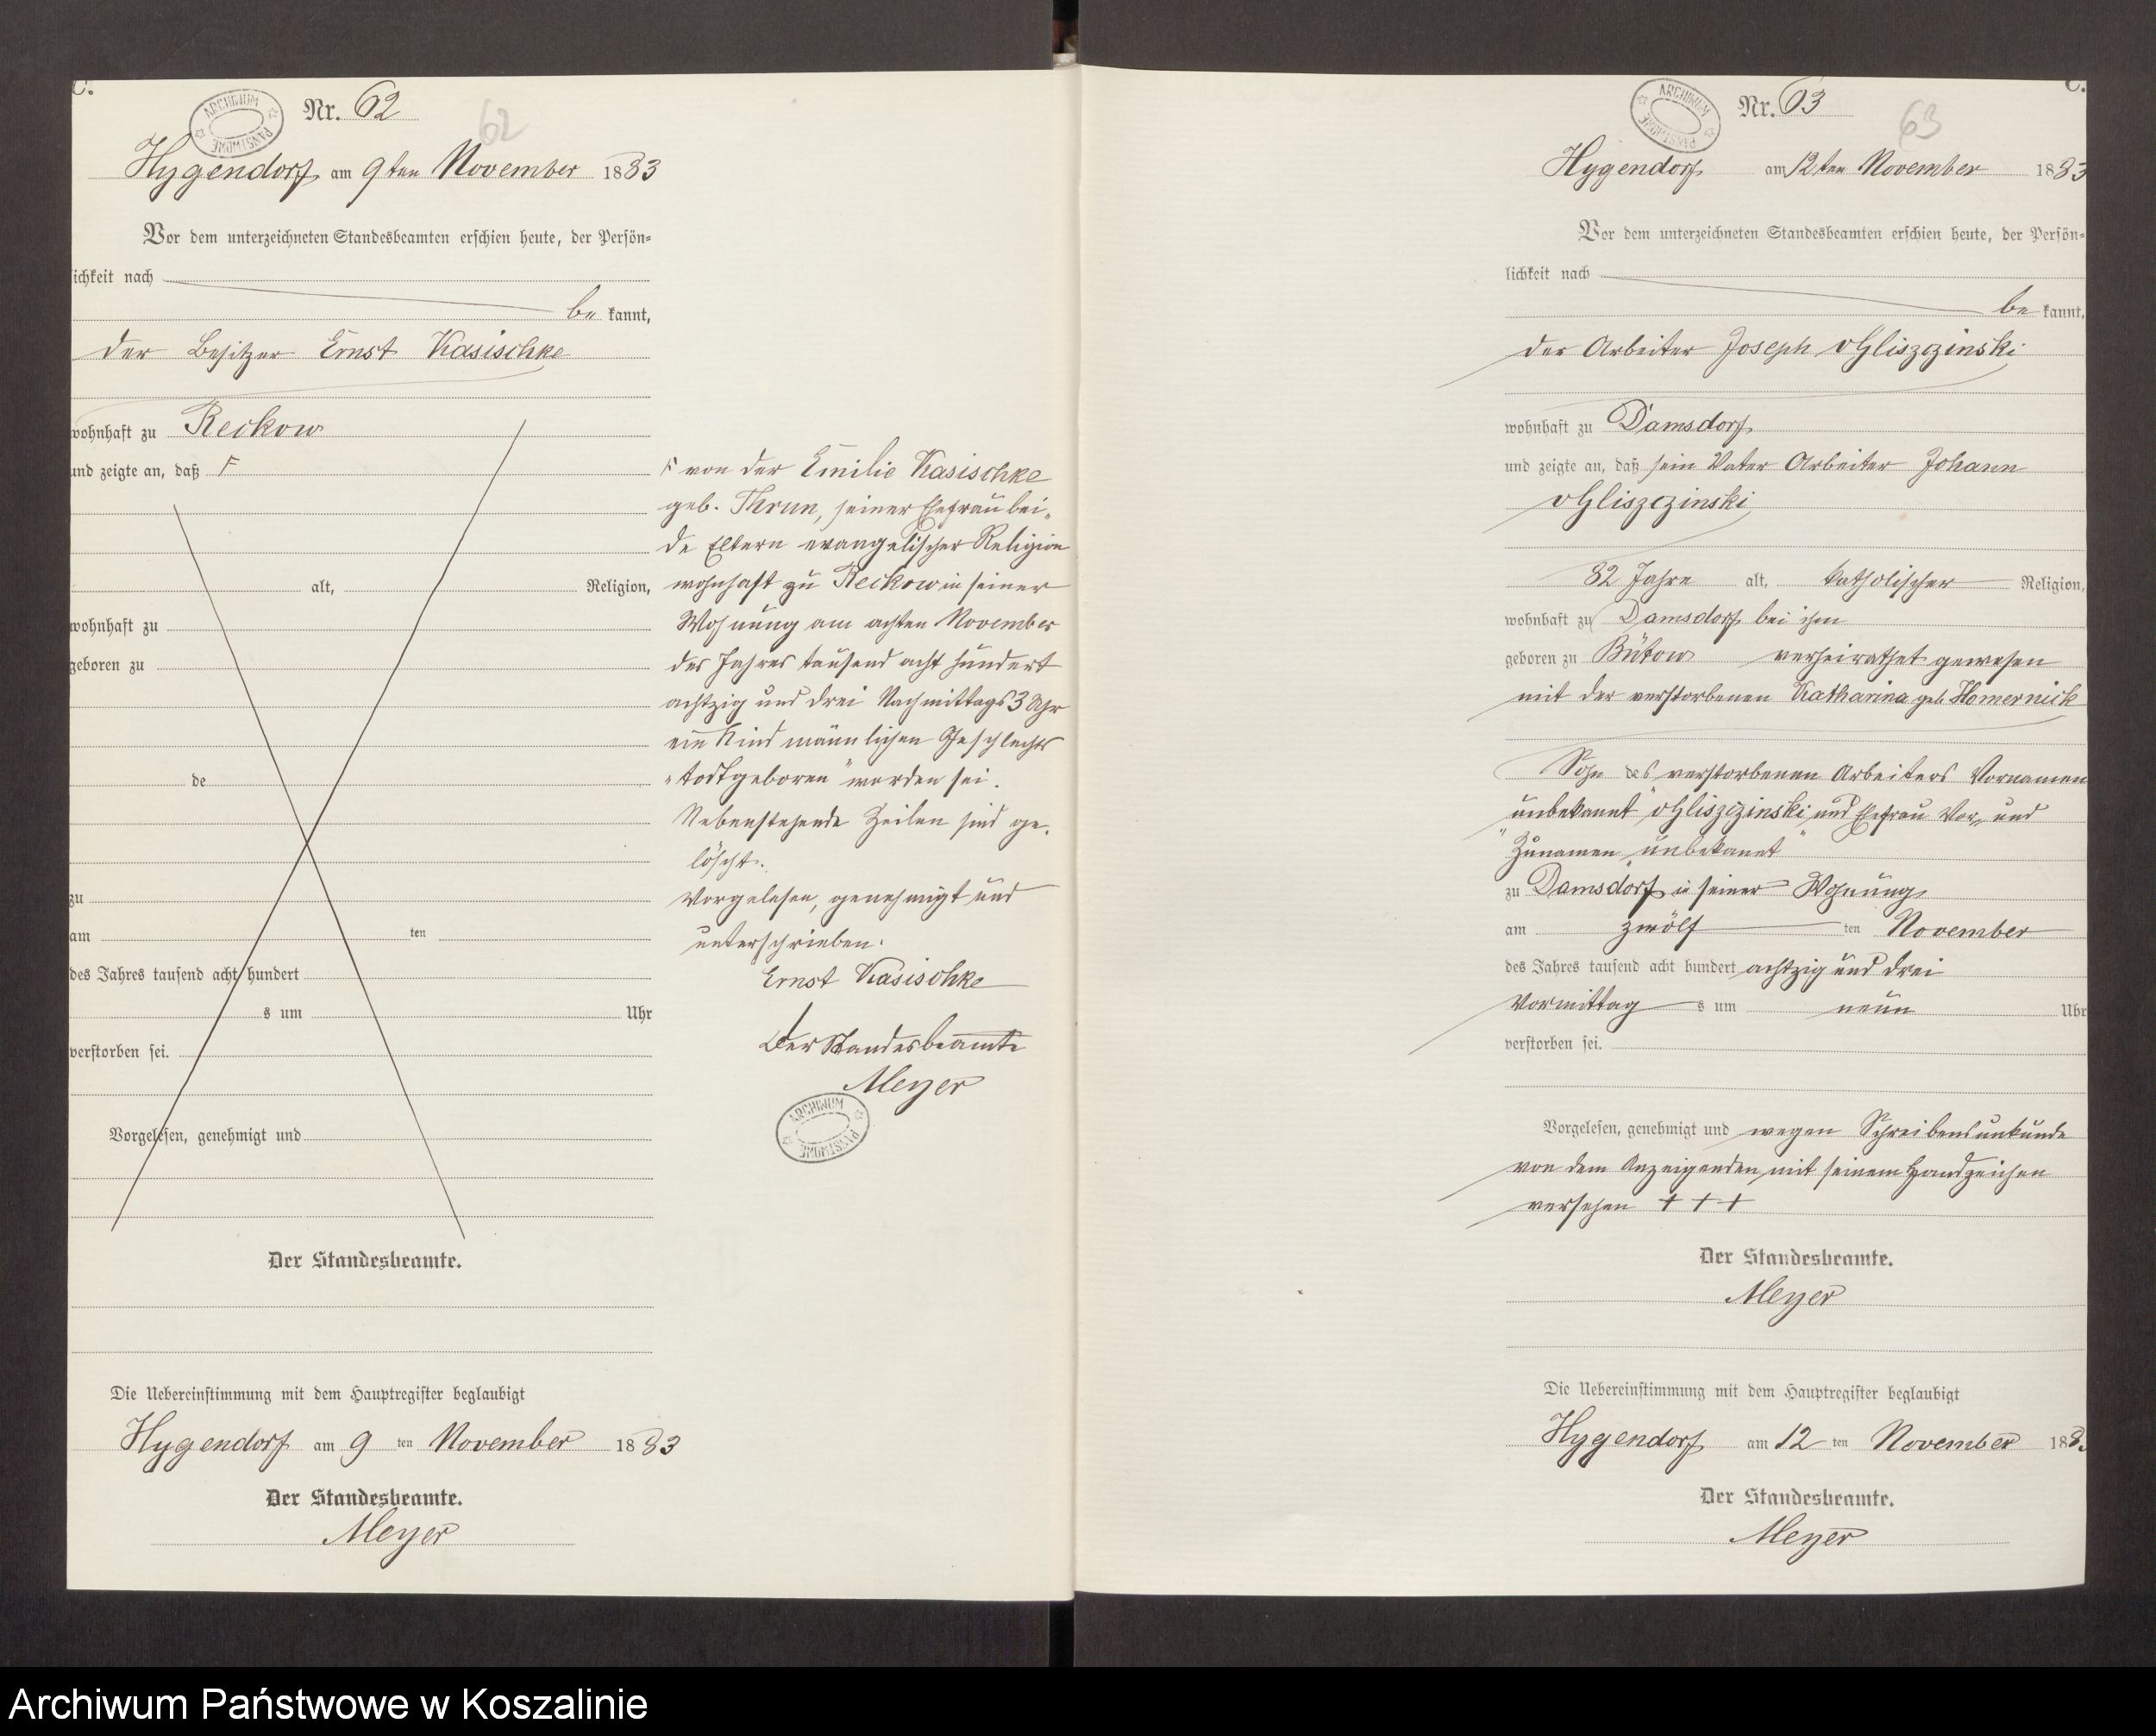 C.
ARCHIWUM PAŃSTWOWE
Nr. 62
62
Hygendorf am 9ten November 1883
Vor dem unterzeichneten Standesbeamten erschien heute, der Persön-
lichkeit nach
be kannt,
der Besitzer Ernst Kasischke
wohnhaft zu Reckow
und zeigte an, daß F
alt, Religion,
wohnhaft zu
geboren zu
de
zu
am ten
des Jahres tausend acht hundert
s um Uhr
verstorben sei.
Vorgelesen, genehmigt und
Der Standesbeamte.
Die Uebereinstimmung mit dem Hauptregister beglaubigt
Hygendorf am 9 ten November 1883
Der Standesbeamte.
Meyer
F von der Emilie Kasischke
geb. Thrun, seiner Ehefrau bei-
de Eltern evangelischer Religion
wohnhaft zu Reckow in seiner
Wohnung am achten November
des Jahres tausend acht hundert
achtzig und drei Nachmittags 3 Uhr
ein Kind männlichen Geschlechts
"todtgeboren" worden sei.
Nebenstehende Zeilen sind ge-
löscht.
Vorgelesen, genehmigt und
unterschrieben.
Ernst Kasischke
Der Standesbeamte
Meyer
ARCHIWUM PAŃSTWOWE
C.
ARCHIWUM PAŃSTWOWE
Nr. 63
63
Hygendorf am 12ten November 1883
Vor dem unterzeichneten Standesbeamten erschien heute, der Persön-
lichkeit nach
be kannt,
der Arbeiter Joseph vGliszczinski
wohnhaft zu Damsdorf
und zeigte an, daß sein Vater Arbeiter Johann
vGliszczinski
82 Jahre alt, katholischer Religion,
wohnhaft zu Damsdorf bei ihm
geboren zu Bütow verheirathet gewesen
mit der verstorbenen Katharina geb. Homernick
Sohn des verstorbenen Arbeiters Vornamen
"unbekannt" vGliszczinski und Ehefrau Vor- und
Zunamen "unbekannt"
zu Damsdorf in seiner Wohnung
am zwölf ten November
des Jahres tausend acht hundert achtzig und drei
Vormittag s um neun Uhr
verstorben sei.
Vorgelesen, genehmigt und wegen Schreibensunkunde
von dem Anzeigenden mit seinem Handzeichen
versehen + + +
Der Standesbeamte.
Meyer
Die Uebereinstimmung mit dem Hauptregister beglaubigt
Hygendorf am 12 ten November 188
Der Standesbeamte.
Meyer
Archiwum Państwowe w Koszalinie